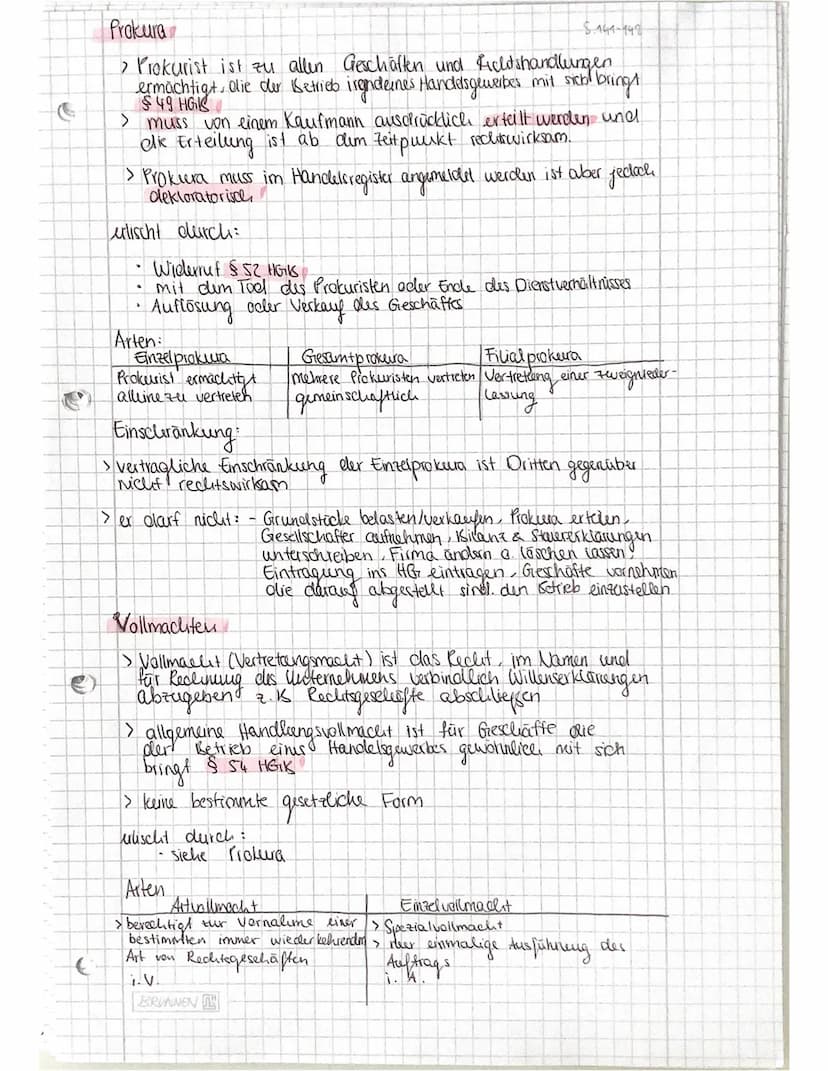 Prokura
S. 141-142
> Prokurist ist zu allen Geschäften und Rechtshandlungen
ermächtigt, die der Betrieb irgendeines Handelsgewerbes mit sich bringt
§ 49 HGB
> muss von einem Kaufmann ausdrücklich erteilt werden und
die Erteilung ist ab dem Zeitpunkt rechtswirksam.
> Prokura muss im Handelsregister angemeldet werden ist aber jedoch
deklaratorisch
erlischt durch:
· Widerruf § 52 HGB
· mit dem Tod des Prokuristen oder Ende des Dienstverhältnisses
· Auflösung oder Verkauf des Geschäfts
Arten:
Einzelprokura | Gesamtprokura | Filialprokura
Prokurist ermächtigt | mehrere Prokuristen vertreten | Vertretung einer Zweignieder-
alleine zu vertreten | gemeinschaftlich | lassung
Einschränkung:
> vertragliche Einschränkung der Einzelprokura ist Dritten gegenüber
nicht rechtswirksam
> er darf nicht: - Grundstücke belasten/verkaufen, Prokura erteilen,
Gesellschafter aufnehmen, Bilanz & Steuererklärungen
unterschreiben, Firma ändern o. löschen lassen,
Eintragung ins HG eintragen, Geschäfte vornehmen
die darauf abgestellt sind. den Betrieb einzustellen
Vollmachten
> Vollmacht (Vertretungsmacht) ist das Recht, im Namen und
für Rechnung des Unternehmens verbindlich Willenserklärungen
abzugeben z.B Rechtsgeschäfte abschließen
> allgemeine Handlungsvollmacht ist für Geschäfte die
der Betrieb eines Handelsgewerbes gewöhnlich mit sich
bringt § 54 HGB
> keine bestimmte gesetzliche Form
erlischt durch:
- siehe Prokura
Arten
Artvollmacht | Einzelvollmacht
> berechtigt zur Vornahme einer | > Spezialvollmacht
bestimmten immer wiederkehrenden | > nur einmalige Ausführung des
Art von Rechtsgeschäften | Auftrags
i.V. | i.A.
BRUNNEN